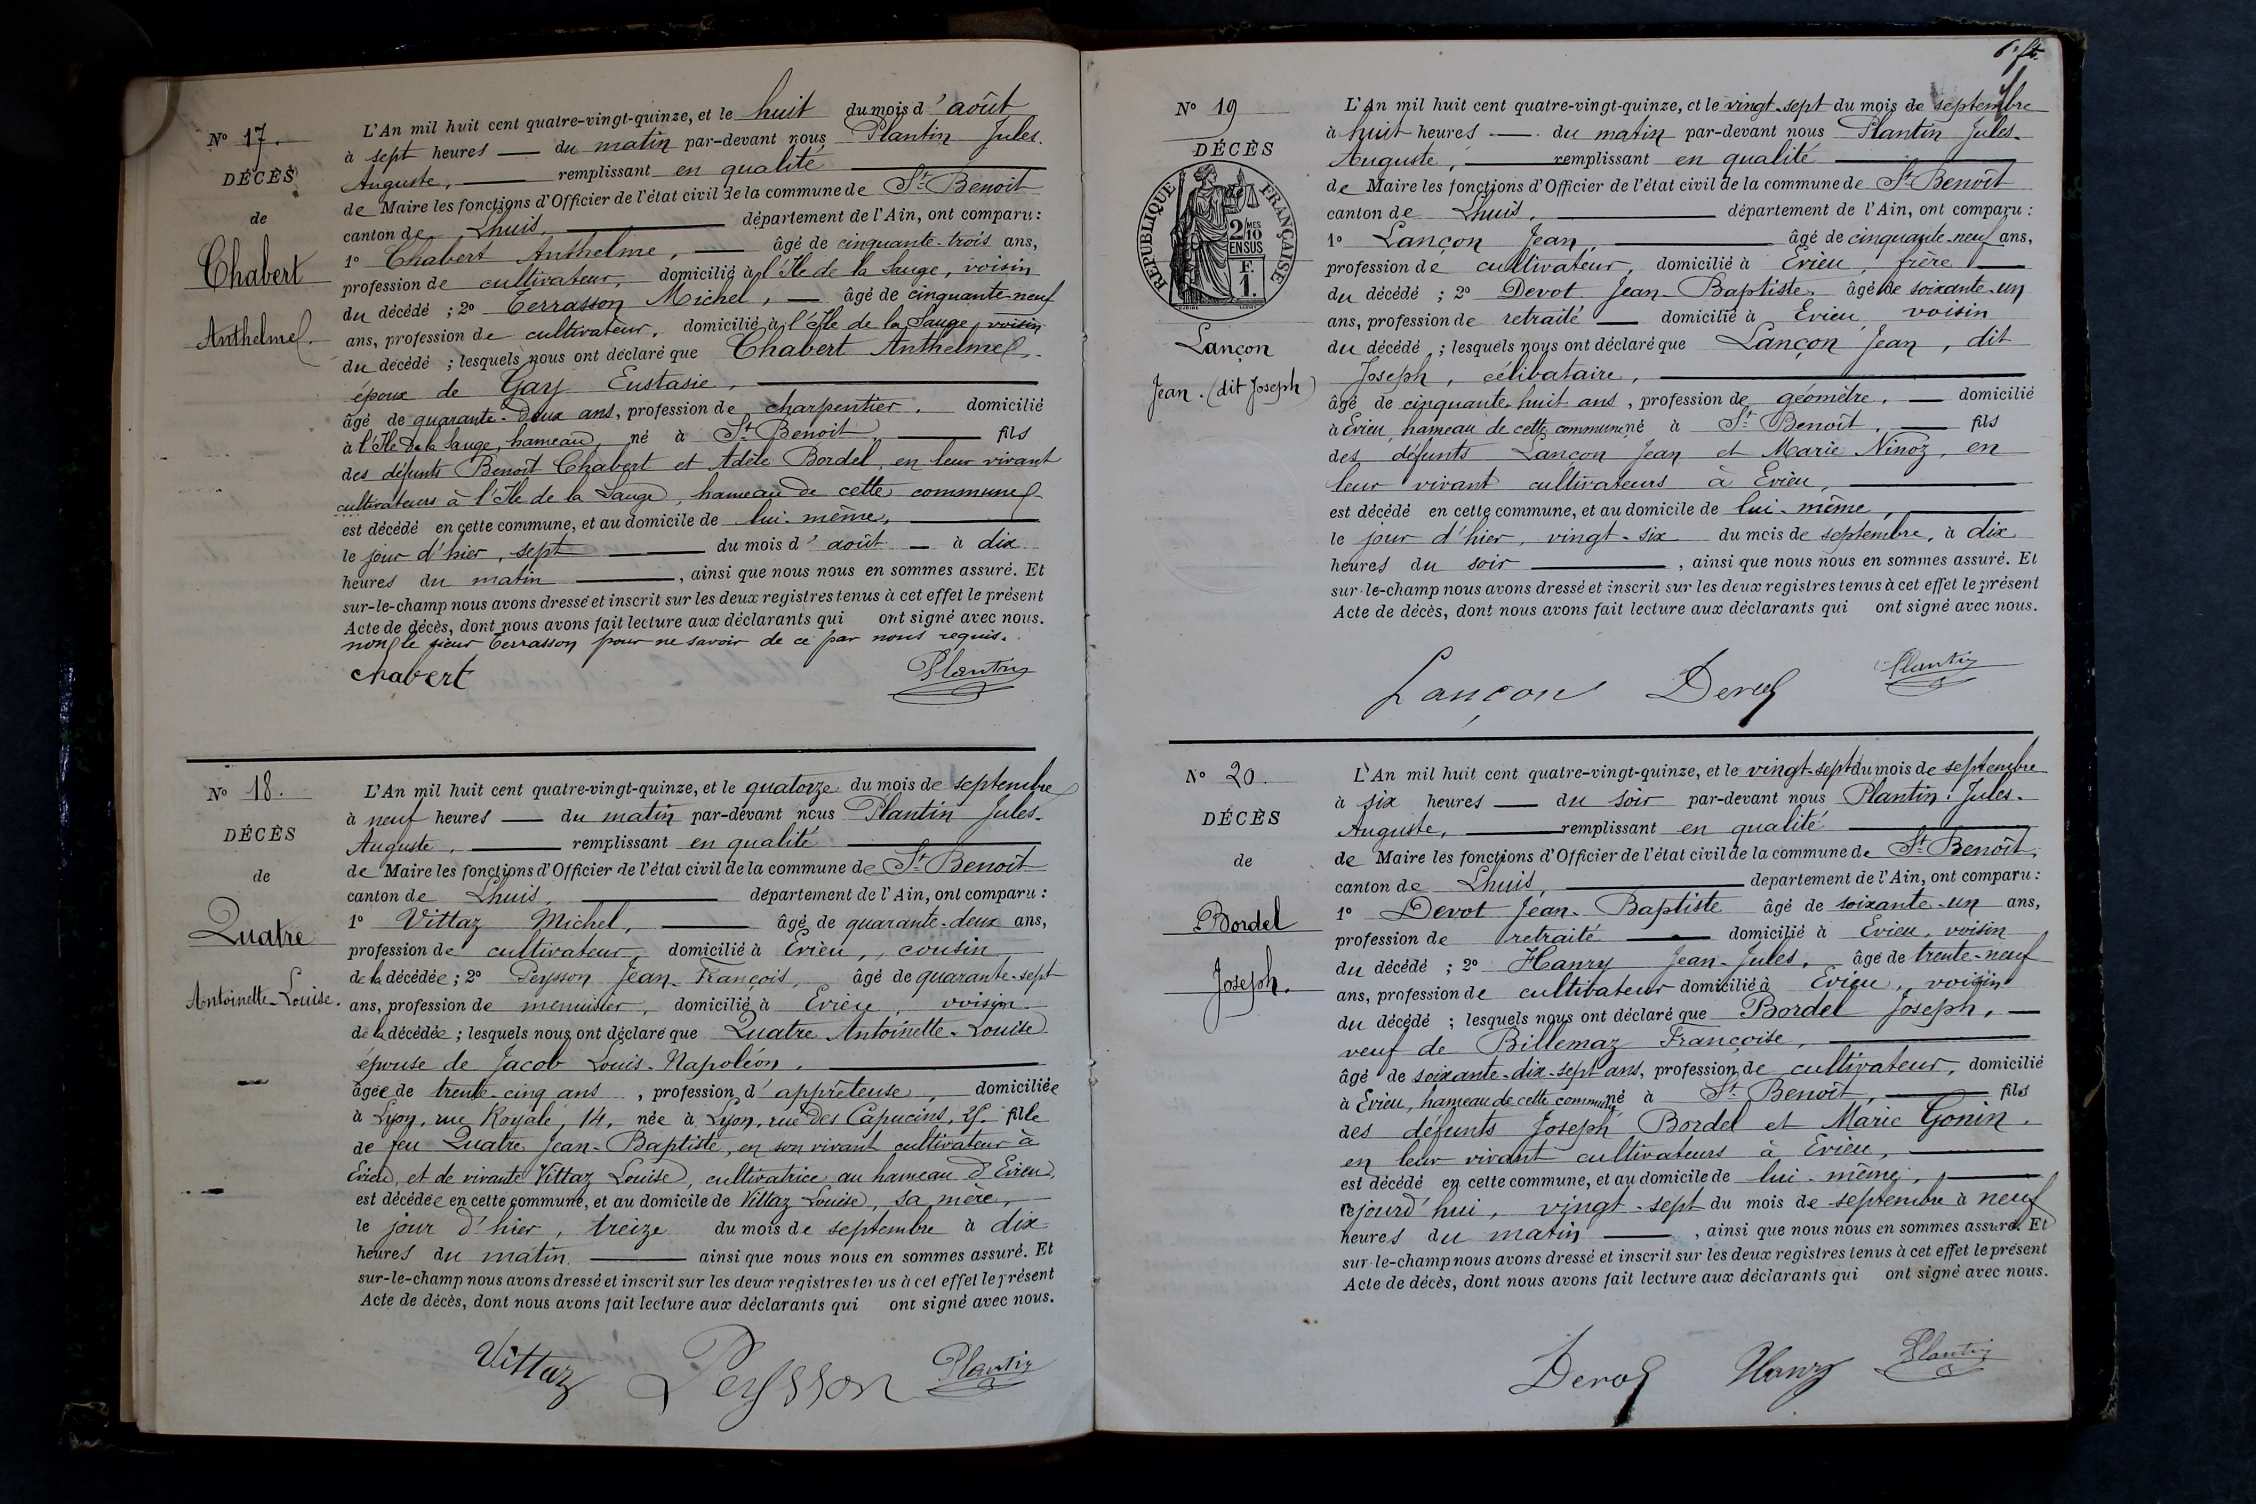 N° 17.
DÉCÈS
de
Chabert
Anthelme.
L'An mil huit cent quatre-vingt-quinze, et le huit du mois d'août
à sept heures — du matin par-devant nous Plantin Jules.
Auguste, — remplissant en qualité —
de Maire les fonctions d'Officier de l'état civil de la commune de St Benoit
canton de Lhuis, — département de l'Ain, ont comparu :
1° Chabert Anthelme, — âgé de cinquante-trois ans,
profession de cultivateur, domicilié à l'Ile de la Sauge, voisin
du décédé ; 2° Terrasson Michel, — âgé de cinquante-neuf
ans, profession de cultivateur, domicilié à l'Ile de la Sauge, voisin
du décédé ; lesquels nous ont déclaré que Chabert Anthelme
époux de Gay Eustasie, —
âgé de quarante-deux ans, profession de charpentier, domicilié
à l'Ile de la Sauge, hameau, né à St Benoit, — fils
des défunts Benoît Chabert et Adèle Bordel, en leur vivant
cultivateurs à l'Ile de la Sauge, hameau de cette commune
est décédé en cette commune, et au domicile de lui-même, —
le jour d'hier, sept — du mois d'août — à dix
heures du matin —, ainsi que nous nous en sommes assuré. Et
sur-le-champ nous avons dressé et inscrit sur les deux registres tenus à cet effet le présent
Acte de décès, dont nous avons fait lecture aux déclarants qui ont signé avec nous.
non le sieur Terrasson pour ne savoir de ce par nous requis.
chabert Plantin
N° 18.
DÉCÈS
de
Quatre
Antoinette-Louise.
L'An mil huit cent quatre-vingt-quinze, et le quatorze du mois de septembre
à neuf heures — du matin par-devant nous Plantin Jules-
Auguste, — remplissant en qualité —
de Maire les fonctions d'Officier de l'état civil de la commune de St Benoit
canton de Lhuis, — département de l'Ain, ont comparu :
1° Vittaz Michel, — âgé de quarante-deux ans,
profession de cultivateur, domicilié à Evieu, cousin
de la décédée ; 2° Peysson Jean-François, âgé de quarante-sept
ans, profession de menuisier, domicilié à Evieu, voisin
de la décédée ; lesquels nous ont déclaré que Quatre Antoinette-Louise
épouse de Jacob Louis-Napoléon, —
âgée de trente-cinq ans, profession d'apprêteuse, domiciliée
à Lyon, rue Royale, 14, née à Lyon, rue des Capucins, 25, fille
de feu Quatre Jean-Baptiste, en son vivant cultivateur à
Evieu, et de vivante Vittaz Louise, cultivatrice au hameau d'Evieu,
est décédée en cette commune, et au domicile de Vittaz Louise, sa mère, —
le jour d'hier, treize du mois de septembre à dix
heures du matin — ainsi que nous nous en sommes assuré. Et
sur-le-champ nous avons dressé et inscrit sur les deux registres tenus à cet effet le présent
Acte de décès, dont nous avons fait lecture aux déclarants qui ont signé avec nous.
Vittaz Peysson Plantin
N° 19
DÉCÈS
RÉPUBLIQUE FRANÇAISE
2/10MES
EN SUS
F.
1.
Lançon
Jean. (dit Joseph)
L'An mil huit cent quatre-vingt-quinze, et le vingt-sept du mois de septembre
à huit heures — du matin par-devant nous Plantin Jules-
Auguste, — remplissant en qualité —
de Maire les fonctions d'Officier de l'état civil de la commune de St Benoît
canton de Lhuis, — département de l'Ain, ont comparu :
1° Lançon Jean, — âgé de cinquante-neuf ans,
profession de cultivateur, domicilié à Evieu, frère —
du décédé ; 2° Devot Jean-Baptiste, âgé de soixante-un
ans, profession de retraité — domicilié à Evieu, voisin
du décédé ; lesquels nous ont déclaré que Lançon Jean, dit
Joseph, célibataire, —
âgé de cinquante-huit ans, profession de géomètre, — domicilié
à Evieu, hameau de cette commune né à St Benoît, — fils
des défunts Lançon Jean et Marie Ninoz, en
leur vivant cultivateurs à Evieu, —
est décédé en cette commune, et au domicile de lui-même, —
le jour d'hier, vingt-six du mois de septembre, à dix
heures du soir —, ainsi que nous nous en sommes assuré. Et
sur-le-champ nous avons dressé et inscrit sur les deux registres tenus à cet effet le présent
Acte de décès, dont nous avons fait lecture aux déclarants qui ont signé avec nous.
Lançon Devot Plantin
N° 20.
DÉCÈS
de
Bordel
Joseph.
L'An mil huit cent quatre-vingt-quinze, et le vingt-sept du mois de septembre
à six heures — du soir par-devant nous Plantin Jules-
Auguste, — remplissant en qualité —
de Maire les fonctions d'Officier de l'état civil de la commune de St Benoît,
canton de Lhuis, — département de l'Ain, ont comparu :
1° Devot Jean-Baptiste âgé de soixante-un ans,
profession de retraité — domicilié à Evieu, voisin
du décédé ; 2° Hanry Jean-Jules, âgé de trente-neuf
ans, profession de cultivateur domicilié à Evieu, voisin
du décédé ; lesquels nous ont déclaré que Bordel Joseph, —
veuf de Billemaz Françoise, —
âgé de soixante-dix-sept ans, profession de cultivateur, domicilié
à Evieu, hameau de cette commune né à St Benoît, — fils
des défunts Joseph Bordel et Marie Gonin,
en leur vivant cultivateurs à Evieu, —
est décédé en cette commune, et au domicile de lui-même, —
cejourd'hui, vingt-sept du mois de septembre à neuf
heures du matin —, ainsi que nous nous en sommes assuré. Et
sur-le-champ nous avons dressé et inscrit sur les deux registres tenus à cet effet le présent
Acte de décès, dont nous avons fait lecture aux déclarants qui ont signé avec nous.
Devot Hanry Plantin